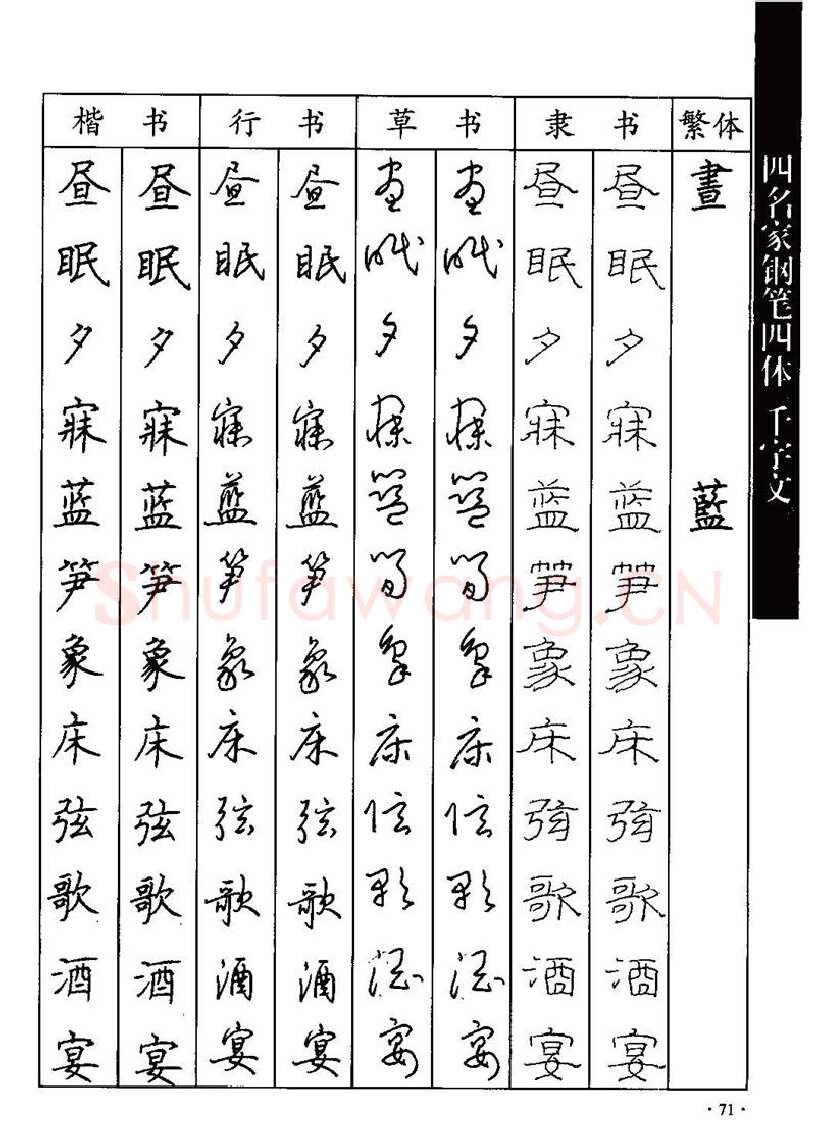 楷书 行书 草书 隶书 繁体
昼 昼 昼 昼 昼 昼 昼 昼 晝
眠 眠 眠 眠 眠 眠 眠 眠
夕 夕 夕 夕 夕 夕 夕 夕
寐 寐 寐 寐 寐 寐 寐 寐
蓝 蓝 蓝 蓝 蓝 蓝 蓝 蓝 藍
笋 笋 笋 笋 笋 笋 笋 笋
象 象 象 象 象 象 象 象
床 床 床 床 床 床 床 床
弦 弦 弦 弦 弦 弦 弦 弦
歌 歌 歌 歌 歌 歌 歌 歌
酒 酒 酒 酒 酒 酒 酒 酒
宴 宴 宴 宴 宴 宴 宴 宴
四名家钢笔四体千字文
Shufawang.CN
·71·